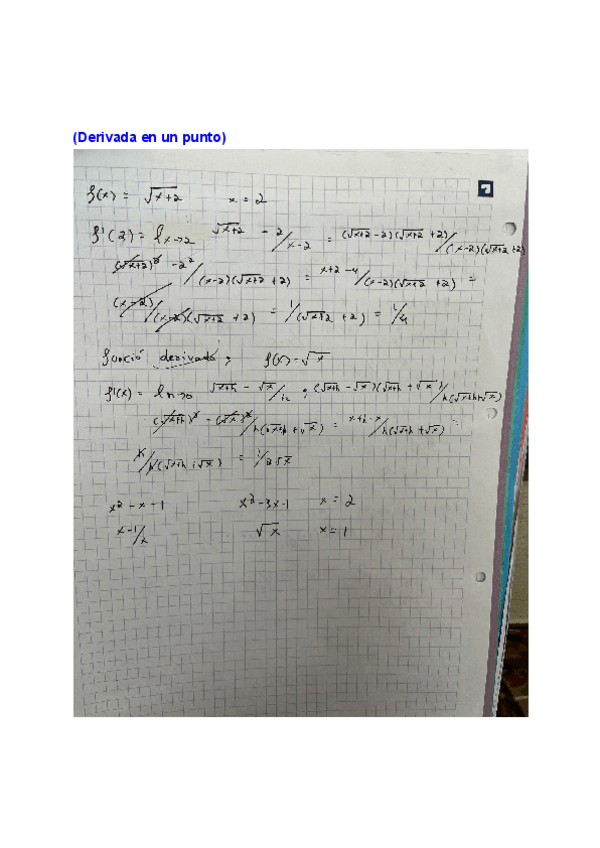 (Derivada en un punto)
f(x) = √x+2 x = 2
f'(2) = l x→2 √x+2 - 2 / x-2 = (√x+2 - 2)(√x+2 + 2) / (x-2)(√x+2 + 2)
(√x+2)² - 2² / (x-2)(√x+2 + 2) = x+2-4 / (x-2)(√x+2 + 2) =
(x-2) / (x-2)(√x+2 + 2) = 1/(√x+2 + 2) = 1/4
funció derivada; f(x) - √x
f'(x) = l h→0 √x+h - √x / h ; (√x+h - √x)(√x+h + √x) / h(√x+h+√x)
(√x+h)² - (√x)² / h(√x+h + √x) = x+h-x / h(√x+h + √x) =
h / h(√x+h + √x) = 1/2√x
x² - x + 1 x² - 3x - 1 x = 2
x - 1/x √x x = 1